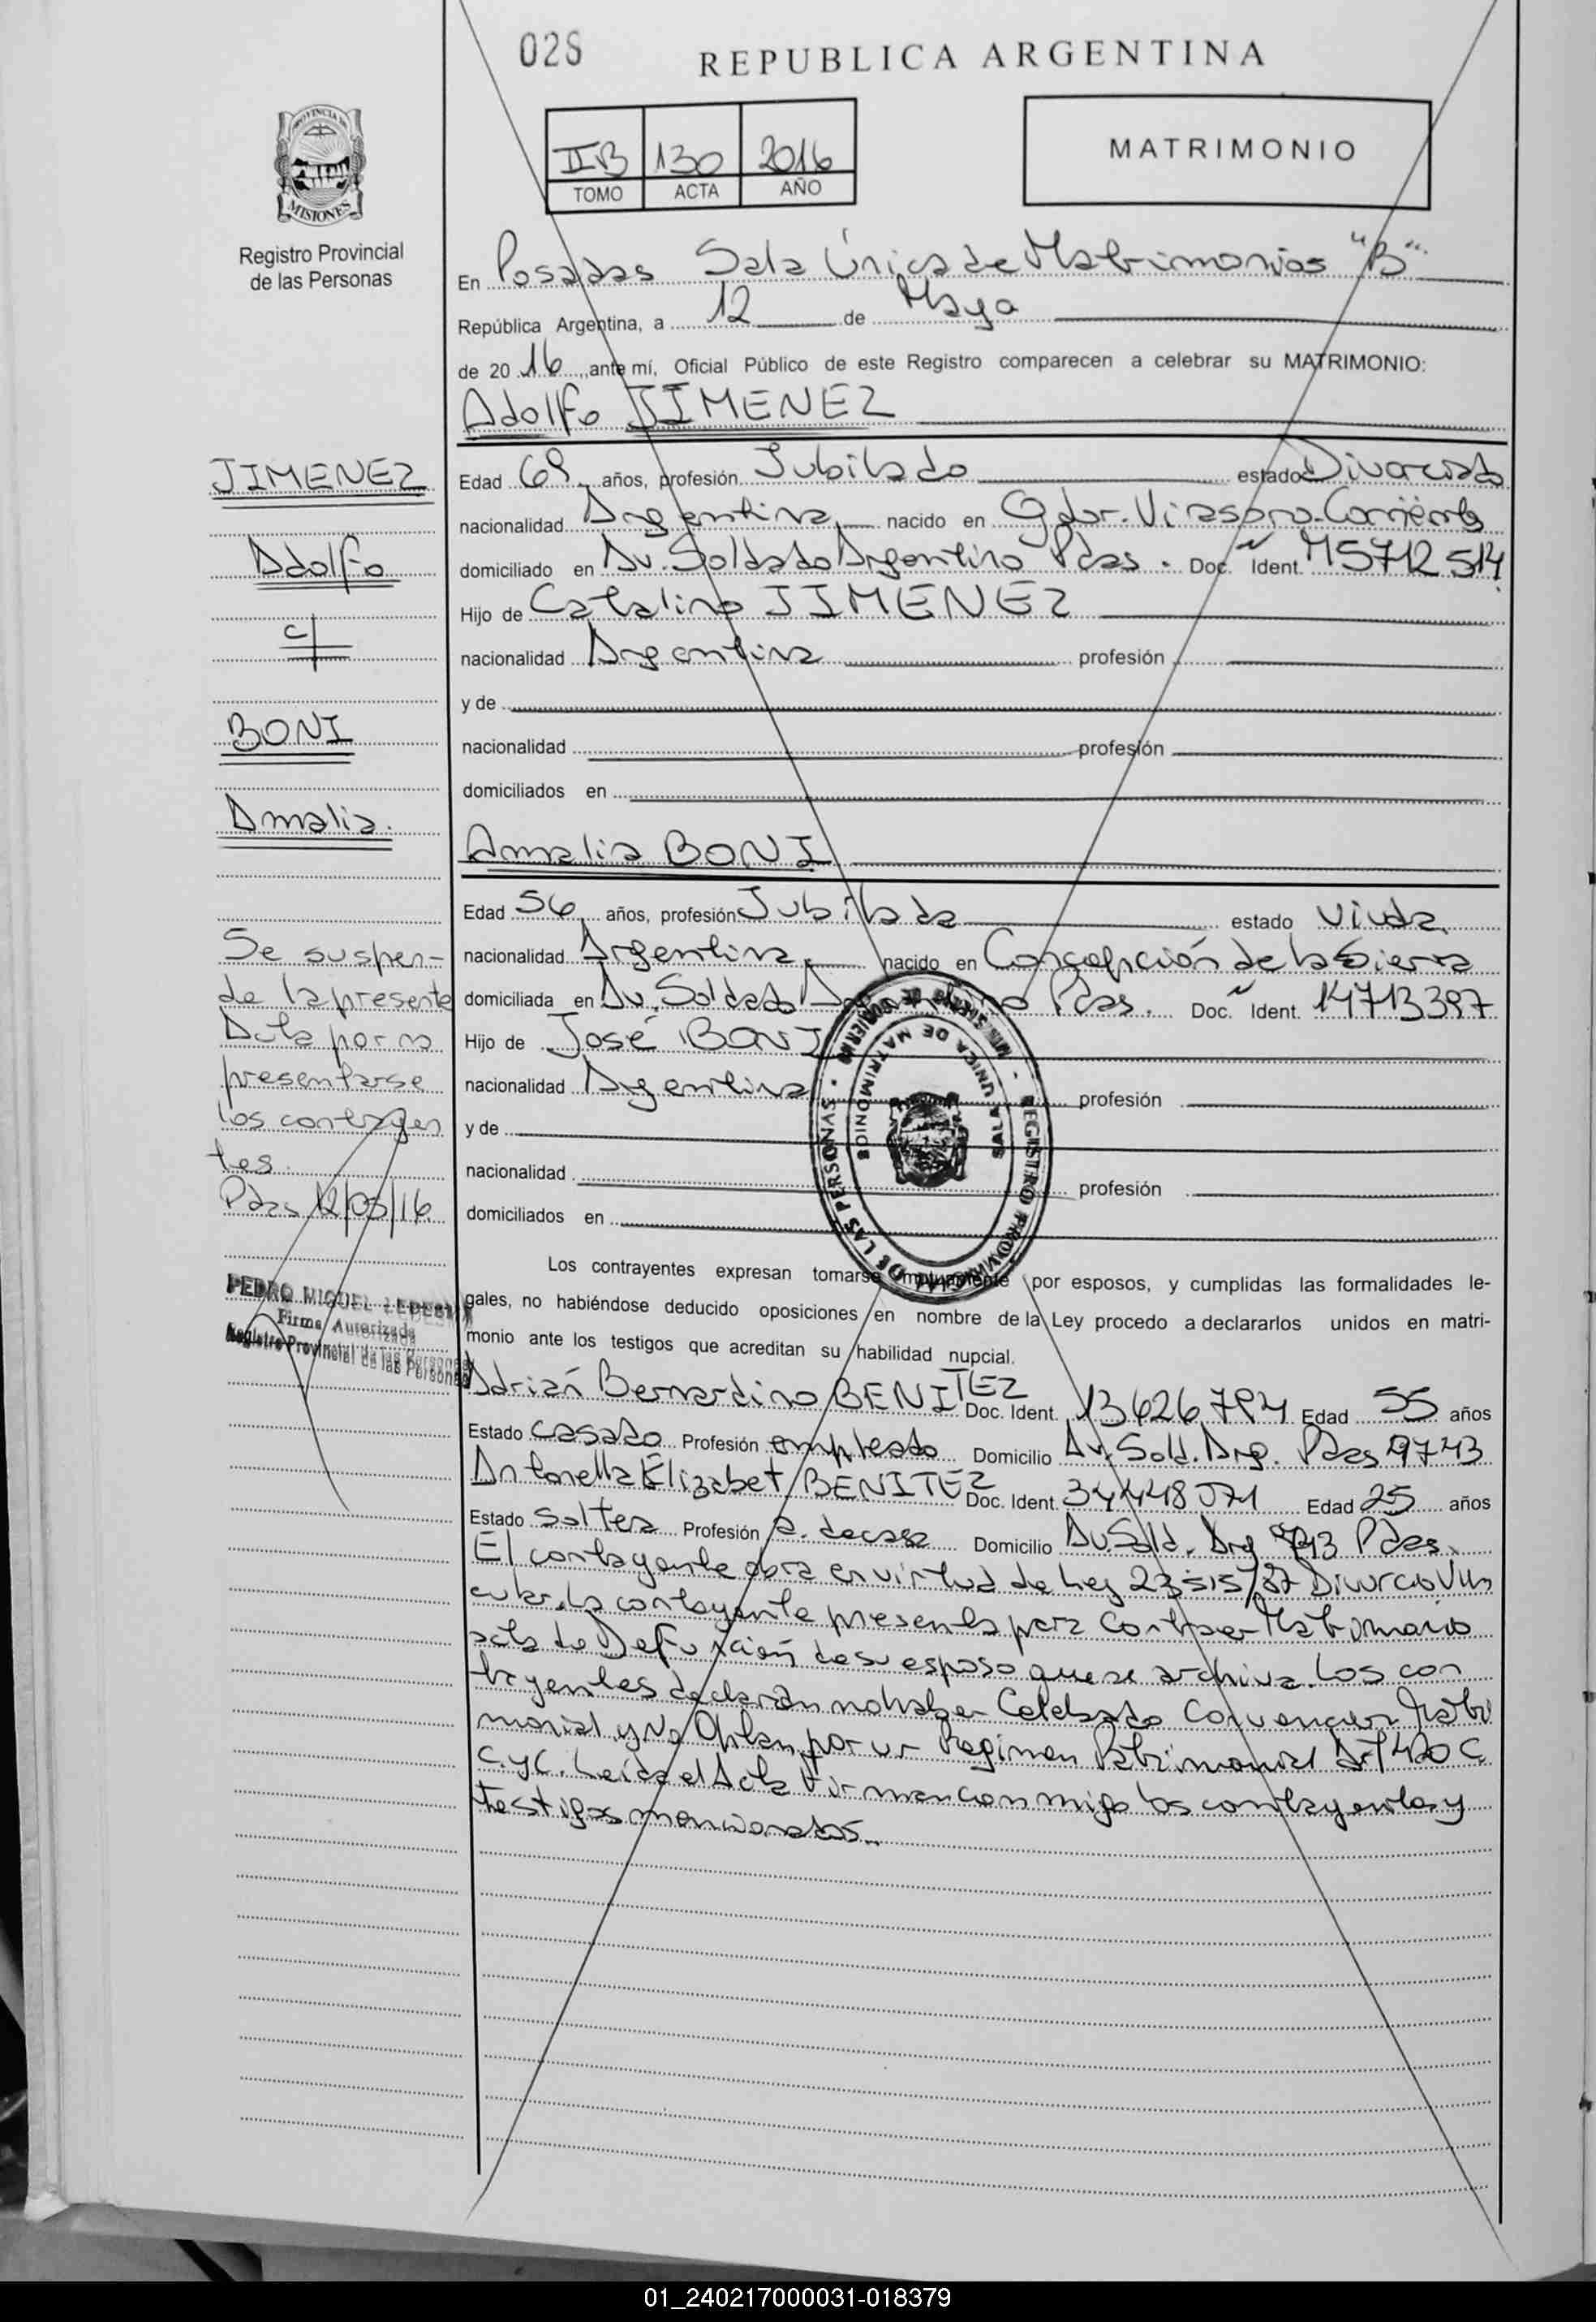 028
REPUBLICA ARGENTINA
PROVINCIA DE
MISIONES
Registro Provincial
de las Personas
IIB 130 2016
TOMO ACTA AÑO
MATRIMONIO
En Posadas Sala Única de Matrimonios "B"
República Argentina, a 12 de Mayo
de 2016, ante mí, Oficial Público de este Registro comparecen a celebrar su MATRIMONIO:
Adolfo JIMENEZ
JIMENEZ
Adolfo
c/
BONI
Amalia.
Edad 69 años, profesión Jubilado estado Divorciado
nacionalidad Argentina nacido en Gdor. Virasoro-Corrientes
domiciliado en Av. Soldado Argentino Pdas. Doc. Ident. M5712.514
Hijo de Catalino JIMENEZ
nacionalidad Argentina profesión
y de
nacionalidad profesión
domiciliados en
Amalia BONI
Edad 56 años, profesión Jubilada estado Viuda
nacionalidad Argentina nacido en Concepción de la Sierra
domiciliada en Av. Soldado Argentino Pdas. Doc. Ident. 14713397
Hijo de José BONI
nacionalidad Argentina profesión
y de
nacionalidad profesión
domiciliados en
Se suspen-
de la presente
Acta por no
presentarse
los contrayen
tes.
Pdas 12/05/16
PEDRO MIGUEL LEDESMA
Firma Autorizada
Registro Provincial de las Personas
MINISTERIO DE GOBIERNO - REGISTRO PROVINCIAL DE LAS PERSONAS
SALA UNICA DE MATRIMONIOS
Los contrayentes expresan tomarse mutuamente por esposos, y cumplidas las formalidades le-
gales, no habiéndose deducido oposiciones en nombre de la Ley procedo a declararlos unidos en matri-
monio ante los testigos que acreditan su habilidad nupcial.
Adrián Bernardino BENITEZ Doc. Ident. 13626794 Edad 55 años
Estado casado Profesión empleado Domicilio Av. Sold. Arg. Pdas 9743
Antonella Elizabet BENITEZ Doc. Ident. 34448071 Edad 25 años
Estado soltera Profesión a. de casa Domicilio Av. Sold. Arg 9743 Pdas.
El contrayente obra en virtud de Ley 23515/87 Divorcio Vin
cular. La contrayente presenta para Contraer Matrimonio
acta de Defunción de su esposo que se archiva. Los con
trayentes declaran no haber Celebrado Convención Matri
monial y No Optan por un Regimen Patrimonial Art 420 C
C.yC. Leida el Acta firman con migo los contrayentes y
testigos mencionados.
01_240217000031-018379